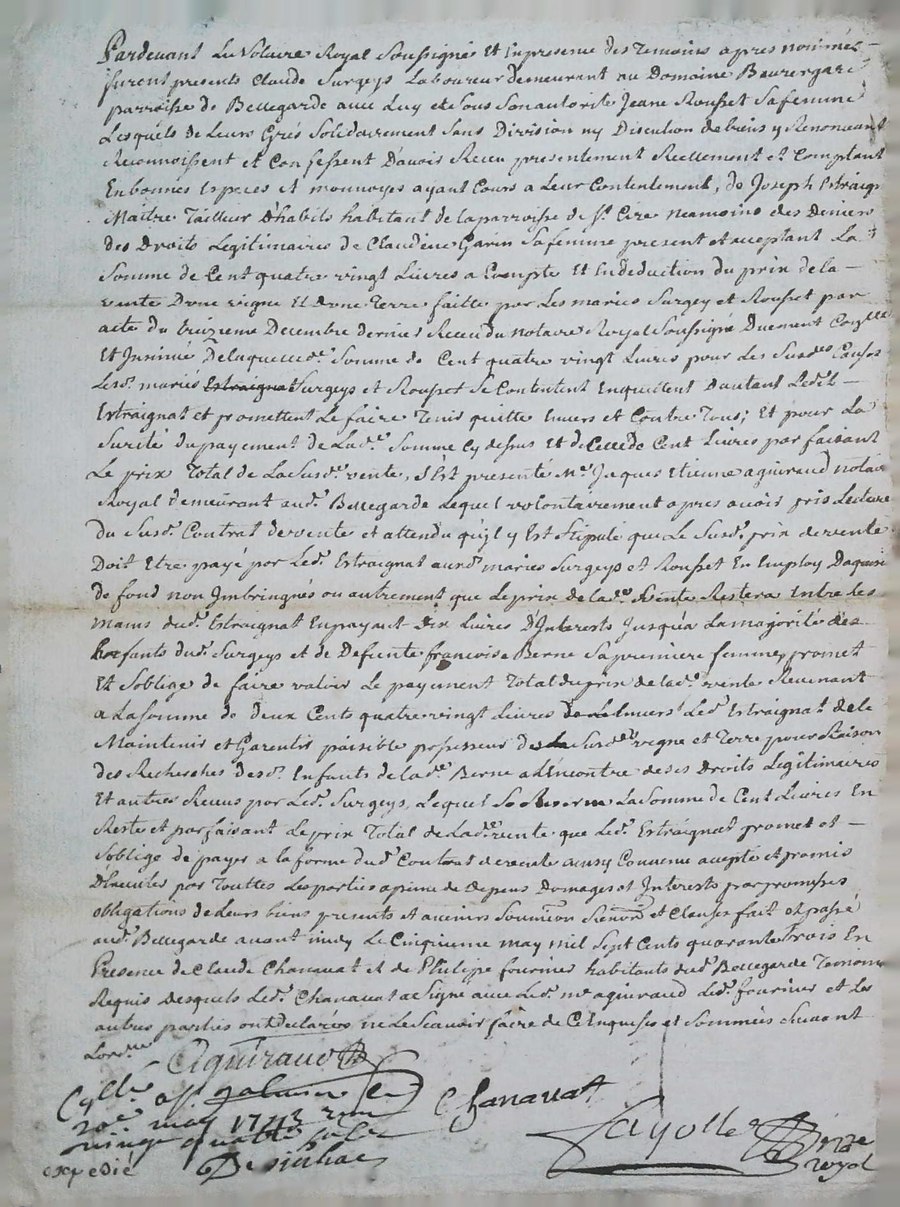 Pardevant Le Notaire Royal Soussigné Et En presence des Temoins apres nommés
furent presents Claude Surgeys Laboureur demeurant au Domaine Beauregard
parroisse de Bellegarde avec Luy et de Sous Son autorité Jeane Rousset Sa femme
Lesquels de Leurs Grés Solidairement Sans Division ny Discution de biens y Renonceant
Reconnoissent et Confessent Davoir Receu presentement Reellement et Comptant
En bonnes Especes et monnoyes ayant Cours a Leur Contentement, de Joseph Estraigna
Maitre Tailleur D'habits habitant de la parroisse de St. Cire neamoins des Deniers
des Droits Legitimaires de Claudine Garin Sa femme present et acceptant La
Somme de Cent quatre vingt Livres a Compte Et En deduction du prix de la
vente Dune vigne Et dune Terre faitte par Les mariés Surgey et Rousset par
acte du treizieme Decembre dernier Receu du Notaire Royal Soussigné Duement Coy.llé
Et Jnsinué De laquelle de. Somme de Cent quatre vingt Livres pour Les Susdes Causes
Lesd. mariés Estraignat Surgeys et Rousset Se Contentent En quittent Dautant Ledit
Estraignat et promettent Le faire Tenir quitte Envers et Contre Tous; Et pour La
Sureté du payement de Lade. Somme Cy dessus et de Celle de Cent Livres par faisant
Le prix Total de La Susde. vente, S'est presenté Me. Jaques Etienne aguiraud notaire
Royal demeurant aud. Bellegarde Lequel volontairement apres avoir pris Lecture
du Susd. Contrat de vente et attendu qu'jl y Est Stipulé que Le Susd. prix de vente
Doit Etre payé par Led. Estraignat auxd. mariés Surgeys et Rousset En Employ Daquisi
de fond non Jmbringués ou autrement que Le prix de lade. Vente Restera Entre les
mains dud. Estraignat En payant dix Livres D'Interests Jusqu'a La majorité des
Enfants dud. Surgeys et de Defunte francoise Berne Sa premiere femme, promet
Et Soblige de faire valoir Le payement Total du prix de lade. vente Revenant
a La Somme de deux Cents quatre vingt Livres Envers Led. Estraignat de le
Maintenir et Garentir paisible possesseur de Susdes vigne et Terre pour Raison
des Recherches desd. Enfants de lade. Berne a L'Encontre de Ses Droits Legitimaires
Et autres Receus par Led. Surgeys, Lequel Se Reserve La Somme de Cent Livres En
Reste et parfaisant Le prix Total de Lade. vente que Led. Estraignat promet et
S'oblige de payer a la forme dud. Contrat de vente ainsy Convenu accepté et promis
D'Executer par Touttes Les parties a peine de depens Domages et Interests par promesses
obligations de Leurs biens presents et avenirs Soumion Renon et Clauses fait et passé
aud. Bellegarde avant midy Le Cinquieme may mil Sept Cents quarante trois En
Presence de Claude Chanavat et de Philipe fournier habitants dud. Bellegarde Temoins
Requis Desquels Led. Chanavat a Signé avec Led. me aguiraud Led. fournier et Les
autres parties ont declarées ne Le Scavoir faire de Ce Enquises et Sommées Suivant
Lordce
Aguiraud
Chanavat
Cyllé a St. galmier le
20e may 1743 reçu
vingt quatre sols
Desichac
expedié
Fayolle nore
royal